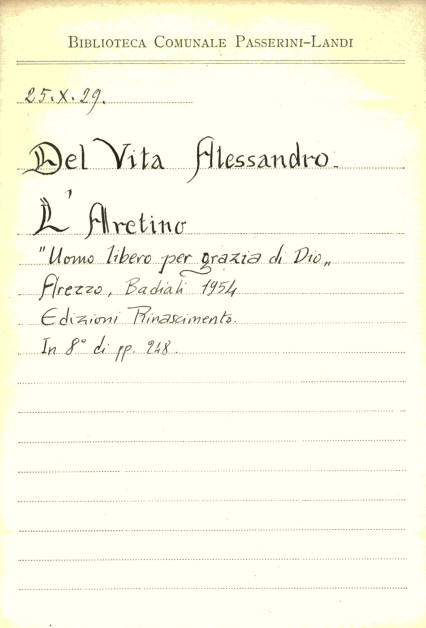 BIBLIOTECA COMUNALE PASSERINI-LANDI
25.X.29.
Del Vita Alessandro.
L'Aretino
"Uomo libero per grazia di Dio„
Arezzo, Badiali 1954
Edizioni Rinascimento.
In 8° di pp. 248.